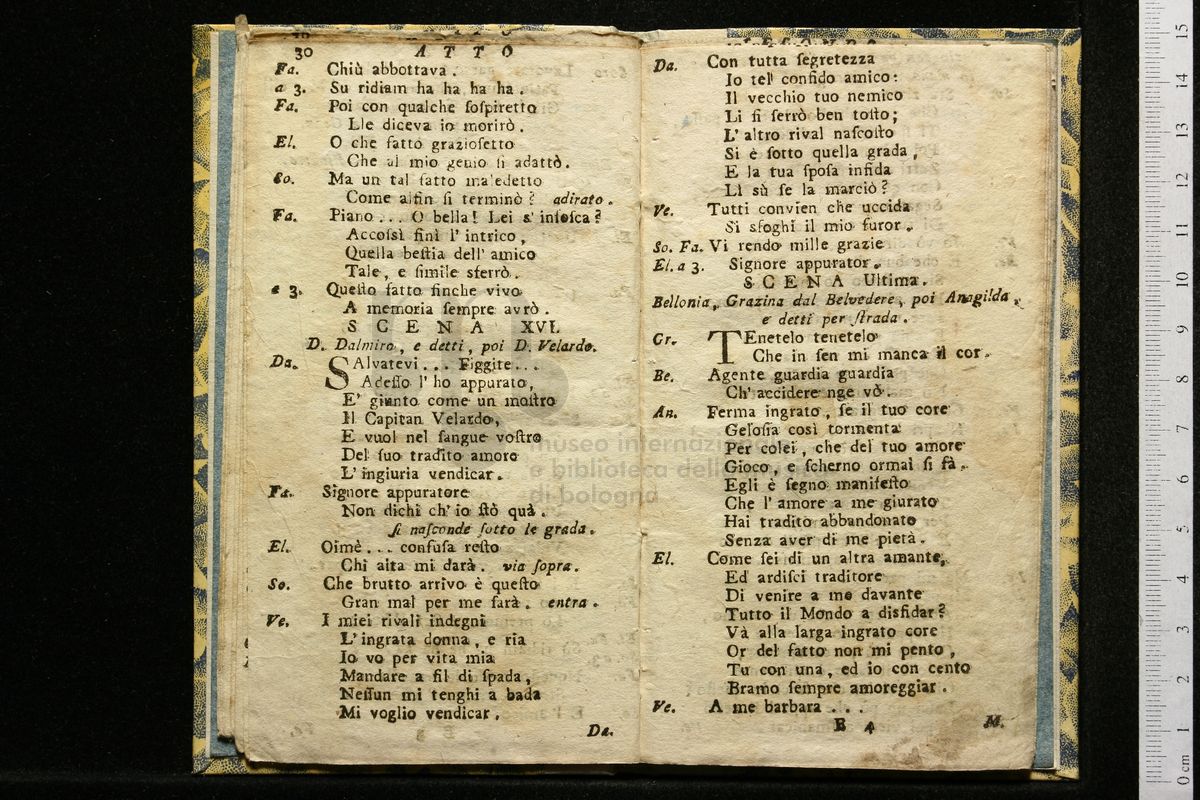 30 ATTO
Fa. Chiù abbottava.
a 3. Su ridiam ha ha ha ha.
Fa. Poi con qualche ſoſpiretto
Lle diceva io morirò.
El. O che fatto grazioſetto
Che al mio genio ſi adattò.
So. Ma un tal fatto maledetto
Come alfin ſi terminò? adirato.
Fa. Piano... O bella! Lei s' infoſca?
Accoſsì finì l' intrico,
Quella beſtia dell' amico
Tale, e ſimile sferrò.
a 3. Queſto fatto finche vivo
A memoria ſempre avrò.
SCENA XVI.
D. Dalmiro, e detti, poi D. Velardo.
Da. SAlvatevi... Figgite...
Adeſſo l' ho appurato,
E' gianto come un moſtro
Il Capitan Velardo,
E vuol nel ſangue voſtro
Del ſuo tradito amore
L' ingiuria vendicar.
Fa. Signore appuratore
Non dichi ch' io ſtò quà.
ſi naſconde ſotto le grada.
El. Oimè... confuſa reſto
Chi aita mi darà. via ſopra.
So. Che brutto arrivo è queſto
Gran mal per me ſarà. entra.
Ve. I miei rivali indegni
L' ingrata donna, e ria
Io vo per vita mia
Mandare a fil di ſpada,
Neſſun mi tenghi a bada
Mi voglio vendicar.
Da.
Da. Con tutta ſegretezza
Io tel' confido amico:
Il vecchio tuo nemico
Li ſi ſerrò ben toſto;
L' altro rival naſcoſto
Si è ſotto quella grada,
E la tua ſpoſa infida
Lì sù ſe la marciò?
Ve. Tutti convien che uccida
Si sfoghi il mio furor.
So. Fa. Vi rendo mille grazie
El. a 3. Signore appurator.
SCENA Ultima.
Bellonia, Grazina dal Belvedere, poi Anagilda,
e detti per ſtrada.
Gr. TEnetelo tenetelo
Che in ſen mi manca il cor.
Be. Agente guardia guardia
Ch' accidere nge vò.
An. Ferma ingrato, ſe il tuo core
Geloſia così tormenta
Per colei, che del tuo amore
Gioco, e ſcherno ormai ſi fà.
Egli è ſegno manifeſto
Che l' amore a me giurato
Hai tradito abbandonato
Senza aver di me pietà.
El. Come ſei di un altra amante,
Ed ardiſci traditore
Di venire a me davante
Tutto il Mondo a disfidar?
Và alla larga ingrato core
Or del fatto non mi pento,
Tu con una, ed io con cento
Bramo ſempre amoreggiar.
Ve. A me barbara...
B 4 M.
museo internazionale
e biblioteca della musica
di bologna
0 cm 1 2 3 4 5 6 7 8 9 10 11 12 13 14 15